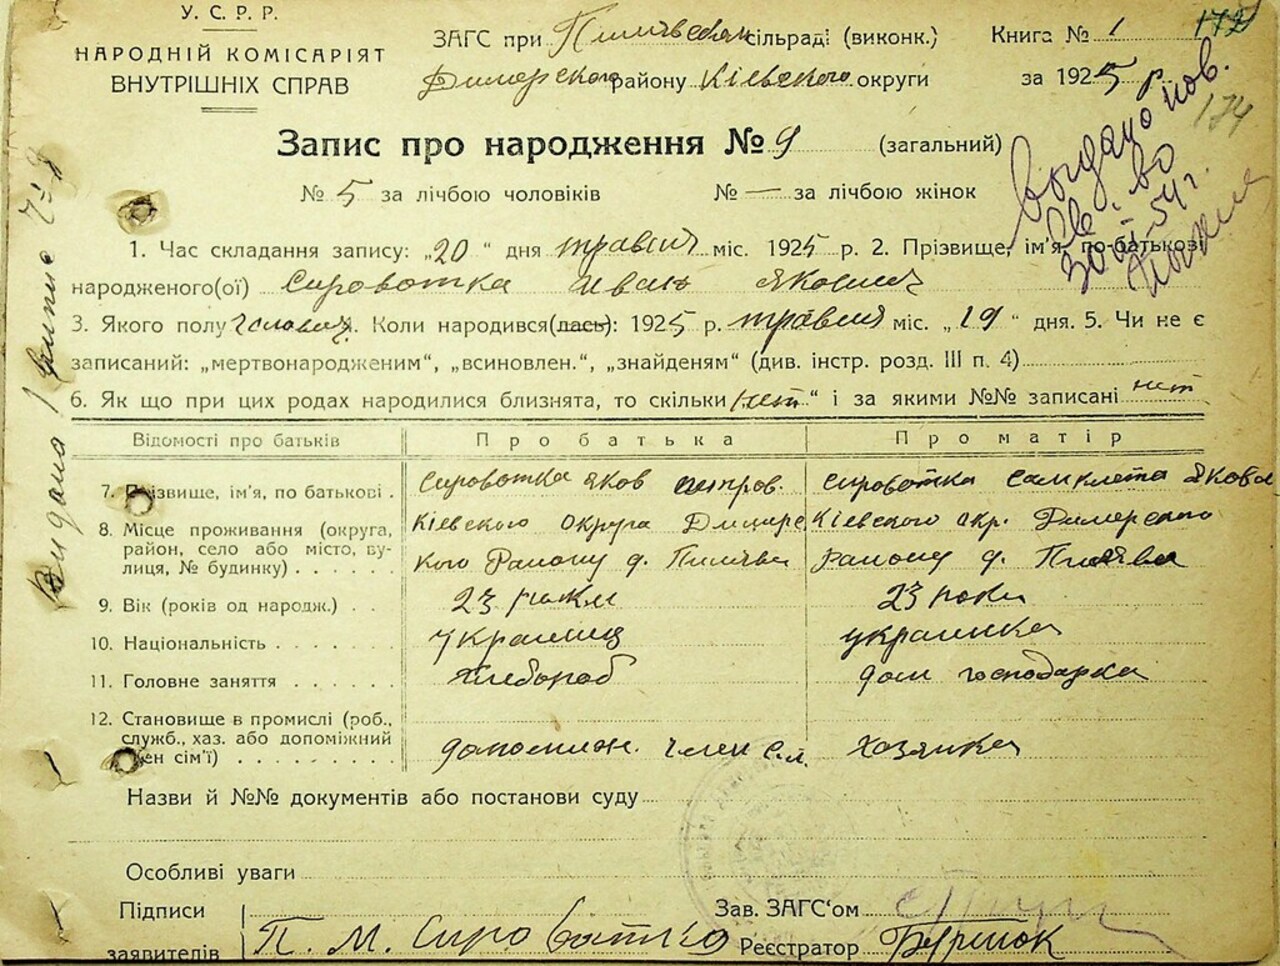 У. С. Р. Р.
НАРОДНІЙ КОМІСАРІЯТ
ВНУТРІШНІХ СПРАВ
ЗАГС при Пилявськ сільраді (виконк.) Книга № 1
172
Димерского району Кіевского округи за 1925 р.
174
Выдано пов.
св-во
54 г.
Запис про народження № 9 (загальний)
№ 5 за лічбою чоловіків № — за лічбою жінок
1. Час складання запису: „20“ дня травня міс. 1925 р. 2. Прізвище, ім'я, по-батькові
народженого(ої) Сироватка Иван Якович
3. Якого полу чоловіч. 4. Коли народився(лась): 1925 р. травня міс. „19“ дня. 5. Чи не є
записаний: „мертвонародженим“, „всиновлен.“, „знайденям“ (див. інстр. розд. III п. 4)
6. Як що при цих родах народилися близнята, то скільки „нет“ і за якими №№ записані нет
Відомості про батьків Про батька Про матір
7. Прізвище, ім'я, по батькові . Сироватка Яков Сироватка Яковл
8. Місце проживання (округа, район, село або місто, вулиця, № будинку) . . . . . . Кіевского округа Димерского Району д. Пилява Кіевского окр. Димерского Району д. Пилява
9. Вік (років од народж.) . . 23 роки 23 роки
10. Національність . . . . . . . украинец украинка
11. Головне заняття . . . . . . хлебороб дом господарка
12. Становище в промислі (роб., служб., хаз. або допоміжний член сім'ї) . . . . . . . . . допомижн. член с.л. хозяйка
Назви й №№ документів або постанови суду
Особливі уваги
Підписи
заявителів П. М. Сироватко
Зав. ЗАГС'ом
Реєстратор
Видана